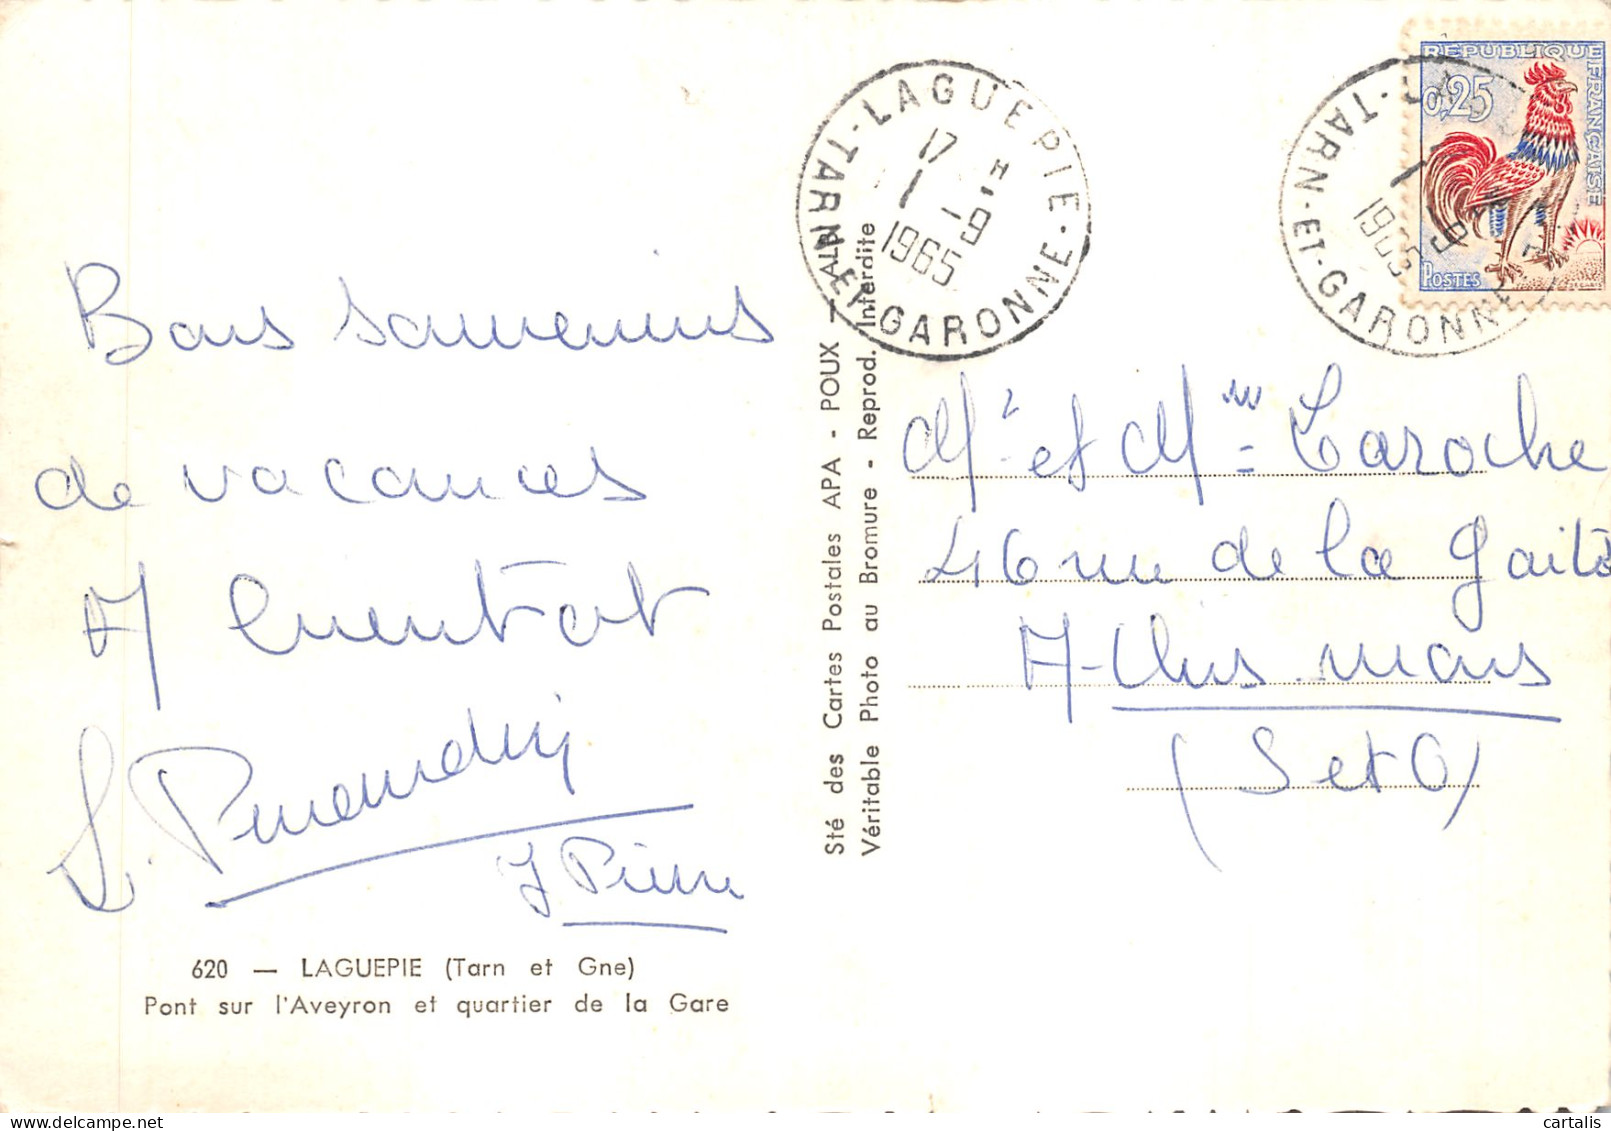 Bons souvenirs
de vacances
A bientôt
J Pierre
620 — LAGUEPIE (Tarn et Gne)
Pont sur l'Aveyron et quartier de la Gare
Sté des Cartes Postales APA - POUX — ALBI
Véritable Photo au Bromure - Reprod. Interdite
LAGUEPIE
17 H
1 - 9
1965
TARN-ET-GARONNE
TARN-ET-GARONNE
1965
REPUBLIQUE FRANÇAISE
0,25
POSTES
Mr et Mme Laroche
46 rue de la Gaité
Athis mons
(S et O)
cartalis